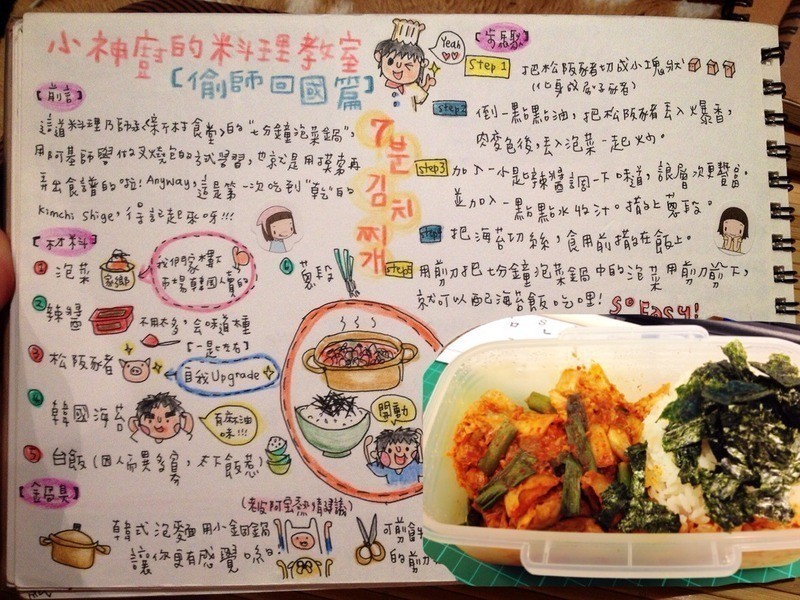 小神廚的料理教室
【偷師回國篇】
Yeah
7분 김치찌개
【前言】
這道料理乃師承《深夜食堂》的"七分鐘泡菜鍋",
用阿基師學做叉燒包的方式學習,也就是用摸索再
弄出食譜的啦!Anyway,這是第一次吃到"乾"的
Kimchi Shige,得記起來呀!!!
【材料】
① 泡菜
家鄉
我們家樓下
市場韓國人賣的
② 辣醬
不用太多,會味道重
【一匙左右】
③ 松阪豬
自我 Upgrade
④ 韓國海苔
有麻油
味!!!
⑤ 白飯(因人而異多寡,太下飯惹)
⑥ 蔥段
開動
【鍋具】
(老皮阿寶熱情建議)
韓式泡麵用小銅鍋
讓你更有感覺喲
可剪
的剪刀
【步驟】
step 1 把松阪豬切成小塊狀
(化身成骰子豬)
step2 倒一點點油,把松阪豬丟入爆香,
肉變色後,丟入泡菜一起炒。
step3 加入一小匙辣醬調一下味道,讓層次更豐富。
並加入一點點水收汁。撒上蔥段。
step4 把海苔切絲,食用前撒在飯上。
step5 用剪刀把七分鐘泡菜鍋中的泡菜用剪刀剪下,
就可以配海苔飯吃哩!So Easy!